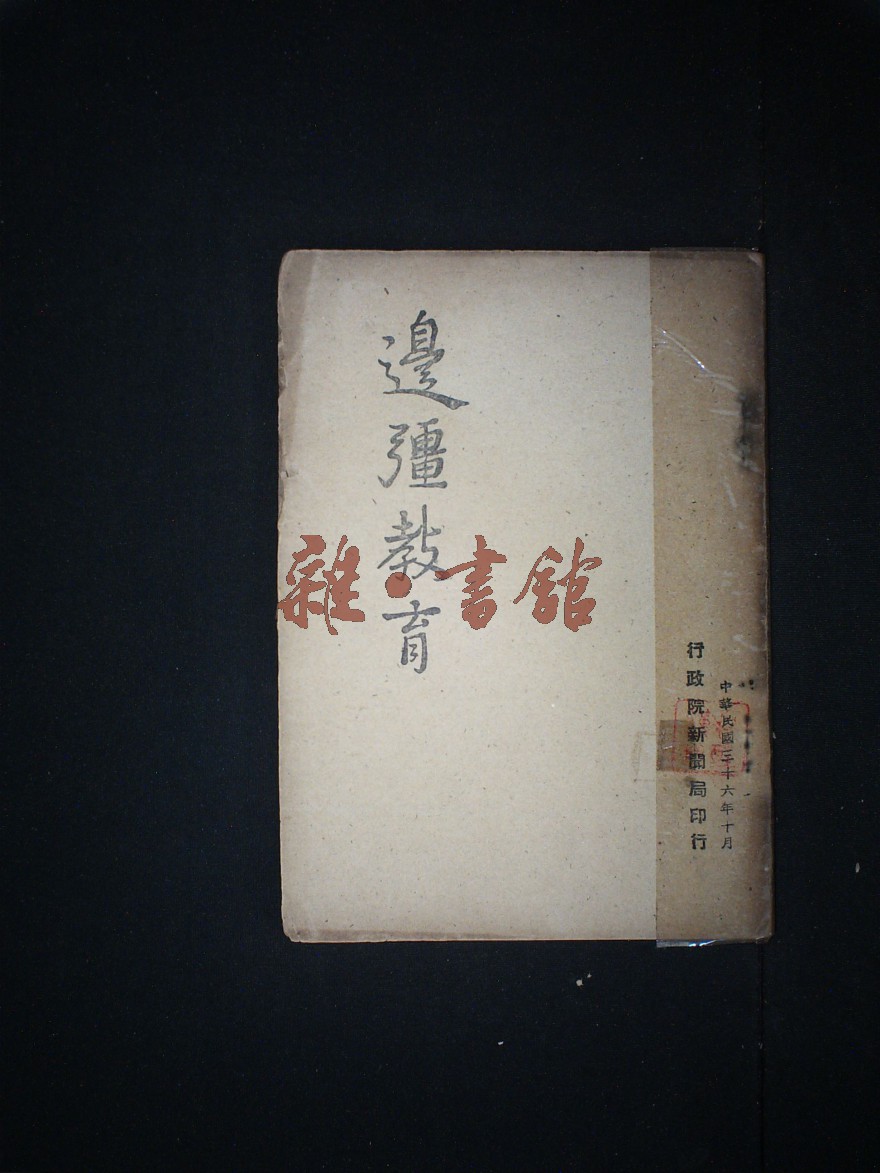 中華民國三十六年十月
行政院新聞局印行
邊彊教育
雜·書館